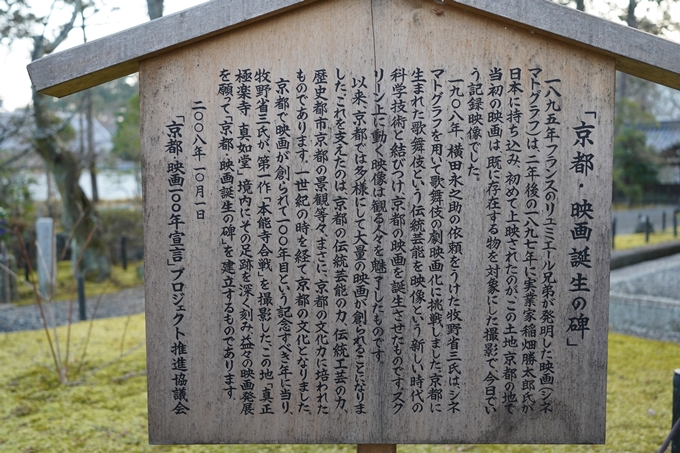 「京都・映画誕生の碑」
一八九五年フランスのリュミエール兄弟が発明した映画(シネ
マトグラフ)は、二年後の一八九七年に実業家稲畑勝太郎氏が
日本に持ち込み、初めて上映されたのが、この土地京都の地で
当初の映画は、既に存在する物を対象にした撮影で、今日でい
う記録映像でした。
一九〇八年、横田永之助の依頼をうけた牧野省三氏は、シネ
マトグラフを用いて歌舞伎の劇映画化に挑戦しました。京都に
生まれた歌舞伎という伝統芸能を映像という新しい時代の
科学技術と結びつけ、京都の映画を誕生させたものです。スク
リーン上に動く映像は観る人々を魅了したものです。
以来、京都では多様にして大量の映画が創られることになりま
した。これを支えたのは、京都の伝統芸能の力、伝統工芸の力、
歴史都市京都の景観等々、まさに、京都の文化力に培われた
ものであります。一世紀の時を経て京都の文化となりました。
京都で映画が創られて一〇〇年目という記念すべき年に当り、
牧野省三氏が、第一作「本能寺合戦」を撮影した、この地「真正
極楽寺 真如堂」境内にその足跡を深く刻み、益々の映画発展
を願って「京都・映画誕生の碑」を建立するものであります。
二〇〇八年一〇月一日
「京都・映画一〇〇年宣言」プロジェクト推進協議会